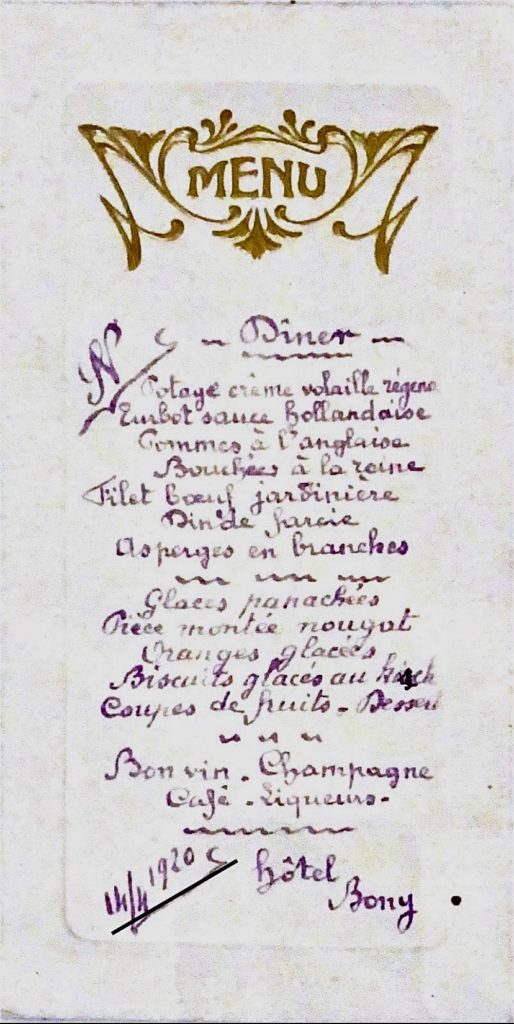 MENU
Dîner
N
Potage crème volaille régence
Turbot sauce hollandaise
Pommes à l'anglaise
Bouchées à la reine
Filet bœuf jardinière
Din'de farcie
Asperges en branches
Glaces panachées
Pièce montée nougat
Oranges glacées
Biscuits glacés au kirsch
Coupes de fruits - Dessert
Bon vin - Champagne
Café - Liqueurs -
14/4 1920
hôtel
Bony